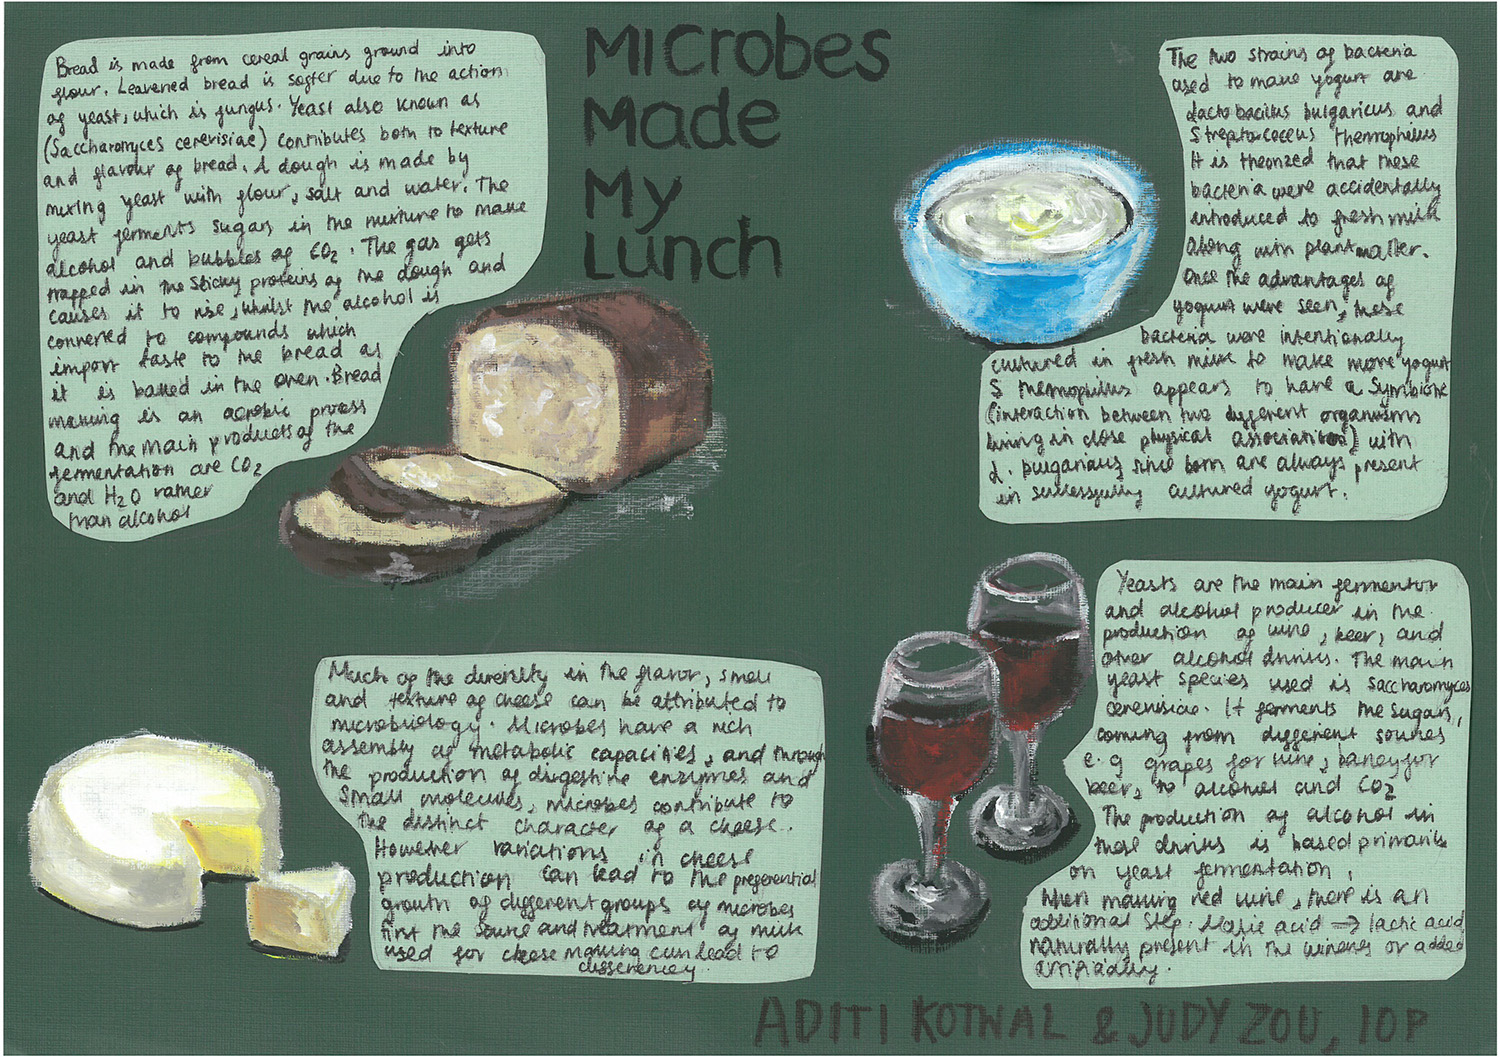 Microbes
Made
My
Lunch
Bread is made from cereal grains ground into
flour. Leavened bread is softer due to the action
of yeast, which is fungus. Yeast also known as
(Saccharomyces cerevisiae) contributes both to texture
and flavour of bread. A dough is made by
mixing yeast with flour, salt and water. The
yeast ferments sugars in the mixture to make
alcohol and bubbles of CO2. The gas gets
trapped in the sticky proteins of the dough and
causes it to rise, whilst the alcohol is
converted to compounds which
import taste to the bread as
it is baked in the oven. Bread
making is an aerobic process
and the main products of the
fermentation are CO2
and H2O rather
than alcohol
The two strains of bacteria
used to make yogurt are
Lactobacillus bulgaricus and
Streptococcus thermophilus
It is theorized that these
bacteria were accidentally
introduced to fresh milk
along with plant matter.
Once the advantages of
yogurt were seen, these
bacteria were intentionally
cultured in fresh milk to make more yogurt
S thermophilus appears to have a symbiotic
(interaction between two different organisms
living in close physical association) with
L. bulgaricus since both are always present
in successfully cultured yogurt.
Much of the diversity in the flavor, smell
and texture of cheese can be attributed to
microbiology. Microbes have a rich
assembly of metabolic capacities, and through
the production of digestive enzymes and
small molecules, microbes contribute to
the distinct character of a cheese.
However variations in cheese
production can lead to the preferential
growth of different groups of microbes
first the source and treatment of milk
used for cheese making can lead to
Yeasts are the main fermentor
and alcohol producer in the
production of wine, beer, and
other alcohol drinks. The main
yeast species used is Saccharomyces
cerevisiae. It ferments the sugars,
coming from different sources
e.g grapes for wine, barley for
beer, to alcohol and CO2
The production of alcohol in
these drinks is based primarily
on yeast fermentation.
When making red wine, there is an
additional step. Malic acid → lactic acid,
naturally present in the winery or added
artificially.
ADITI KOTWAL & JUDY ZOU, 10P